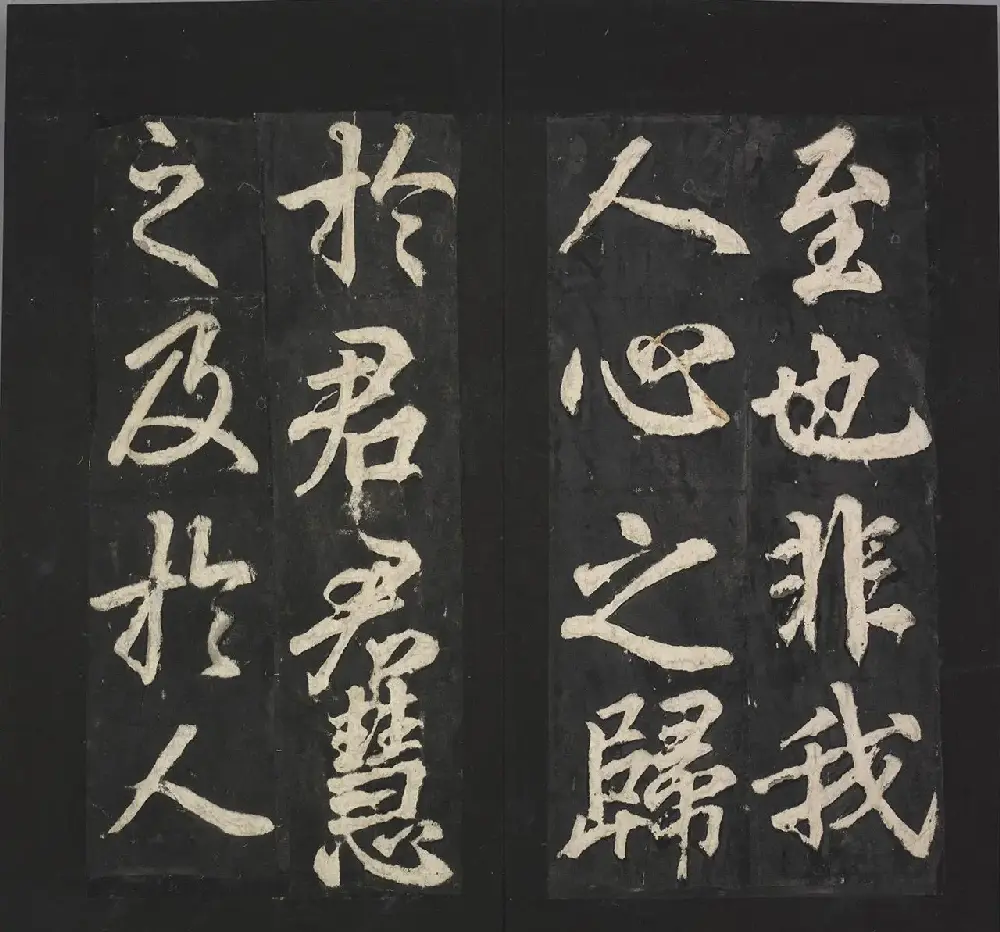 至也非我
人心之歸
於君君慧
之及於人